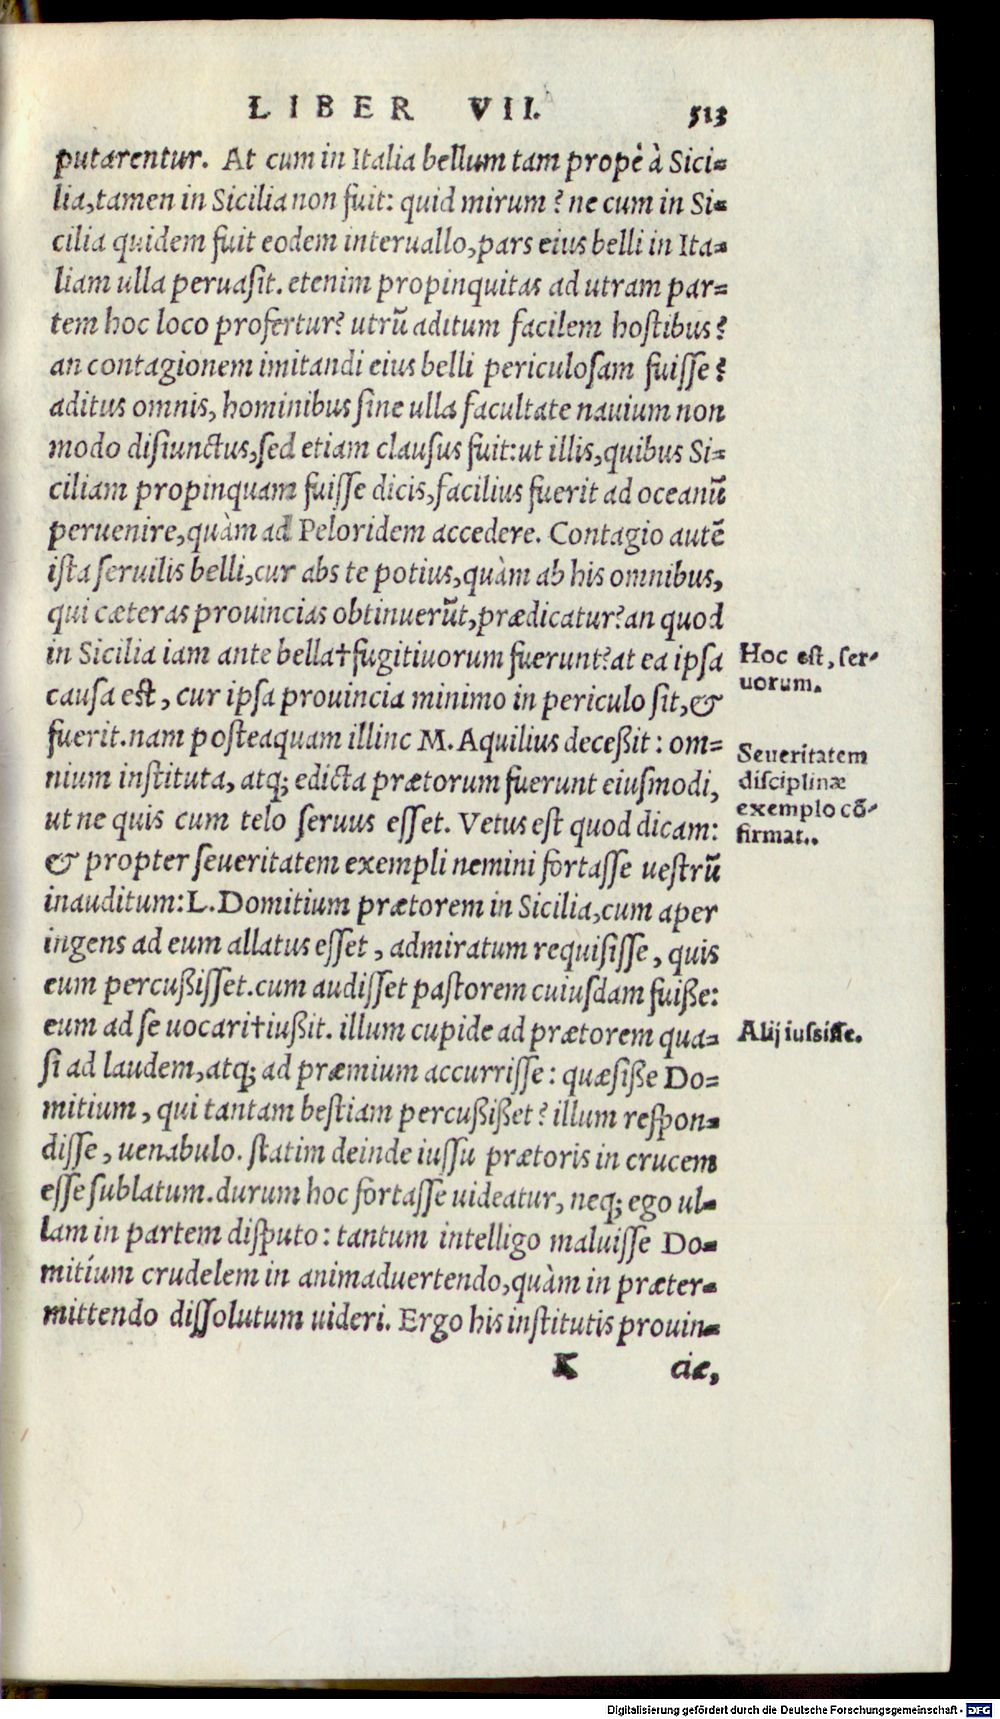 LIBER VII. 513
putarentur. At cum in Italia bellum tam propè à Sici=
lia, tamen in Sicilia non fuit: quid mirum? ne cum in Si=
cilia quidem fuit eodem interuallo, pars eius belli in Ita=
liam ulla peruasit. etenim propinquitas ad utram par=
tem hoc loco profertur? utrũ aditum facilem hostibus?
an contagionem imitandi eius belli periculosam fuisse?
aditus omnis, hominibus sine ulla facultate nauium non
modo disiunctus, sed etiam clausus fuit: ut illis, quibus Si=
ciliam propinquam fuisse dicis, facilius fuerit ad oceanũ
peruenire, quàm ad Peloridem accedere. Contagio autẽ
ista seruilis belli, cur abs te potius, quàm ab his omnibus,
qui cæteras prouincias obtinuerũt, prædicatur? an quod
in Sicilia iam ante bella†fugitiuorum fuerunt? at ea ipsa
Hoc est, ser=
uorum.
causa est, cur ipsa prouincia minimo in periculo sit, &
fuerit. nam posteaquam illinc M. Aquilius deceßit: om=
nium instituta, atq; edicta prætorum fuerunt eiusmodi,
Seueritatem
disciplinæ
exemplo cõ=
firmat..
ut ne quis cum telo seruus esset. Vetus est quod dicam:
& propter seueritatem exempli nemini fortasse uestrũ
inauditum: L. Domitium prætorem in Sicilia, cum aper
ingens ad eum allatus esset, admiratum requisisse, quis
eum percußisset. cum audisset pastorem cuiusdam fuiße:
eum ad se uocari†iußit. illum cupide ad prætorem qua=
Alij iussisse.
si ad laudem, atq; ad præmium accurrisse: quæsiße Do=
mitium, qui tantam bestiam percußißet? illum respon=
disse, uenabulo. statim deinde iussu prætoris in crucem
esse sublatum. durum hoc fortasse uideatur, neq; ego ul=
lam in partem disputo: tantum intelligo maluisse Do=
mitium crudelem in animaduertendo, quàm in præter=
mittendo dissolutum uideri. Ergo his institutis prouin=
K ciæ,
Digitalisierung gefördert durch die Deutsche Forschungsgemeinschaft - DFG